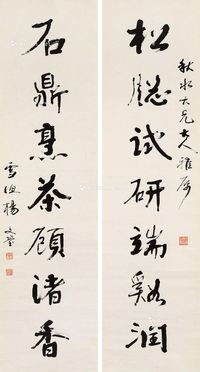 秋水大兄大人雅属
松窗试研端溪润
石鼎烹茶顾渚香
雪渔杨文莹